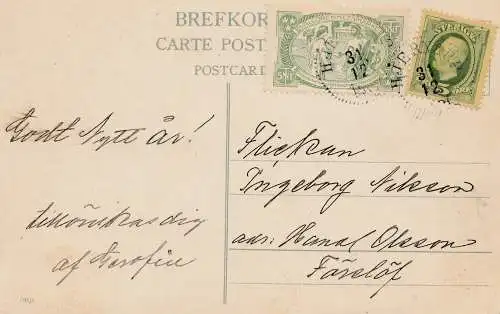 BREFKOR
CARTE POST
POSTCARD
SVERIGE
31
12
31
12
Godt Nytt år!
tillönskas dig
af
Flickan
Ingeborg Nilsson
adr. Hanal Olsson
Förslöf